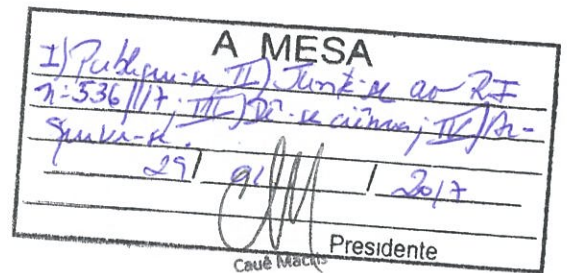 A MESA
I) Publique-se II) Junte-se ao RI
n: 536/17; III) Dê-se ciência; IV) Ar-
quive-se.
29/ /2017
Presidente
Cauê Macris